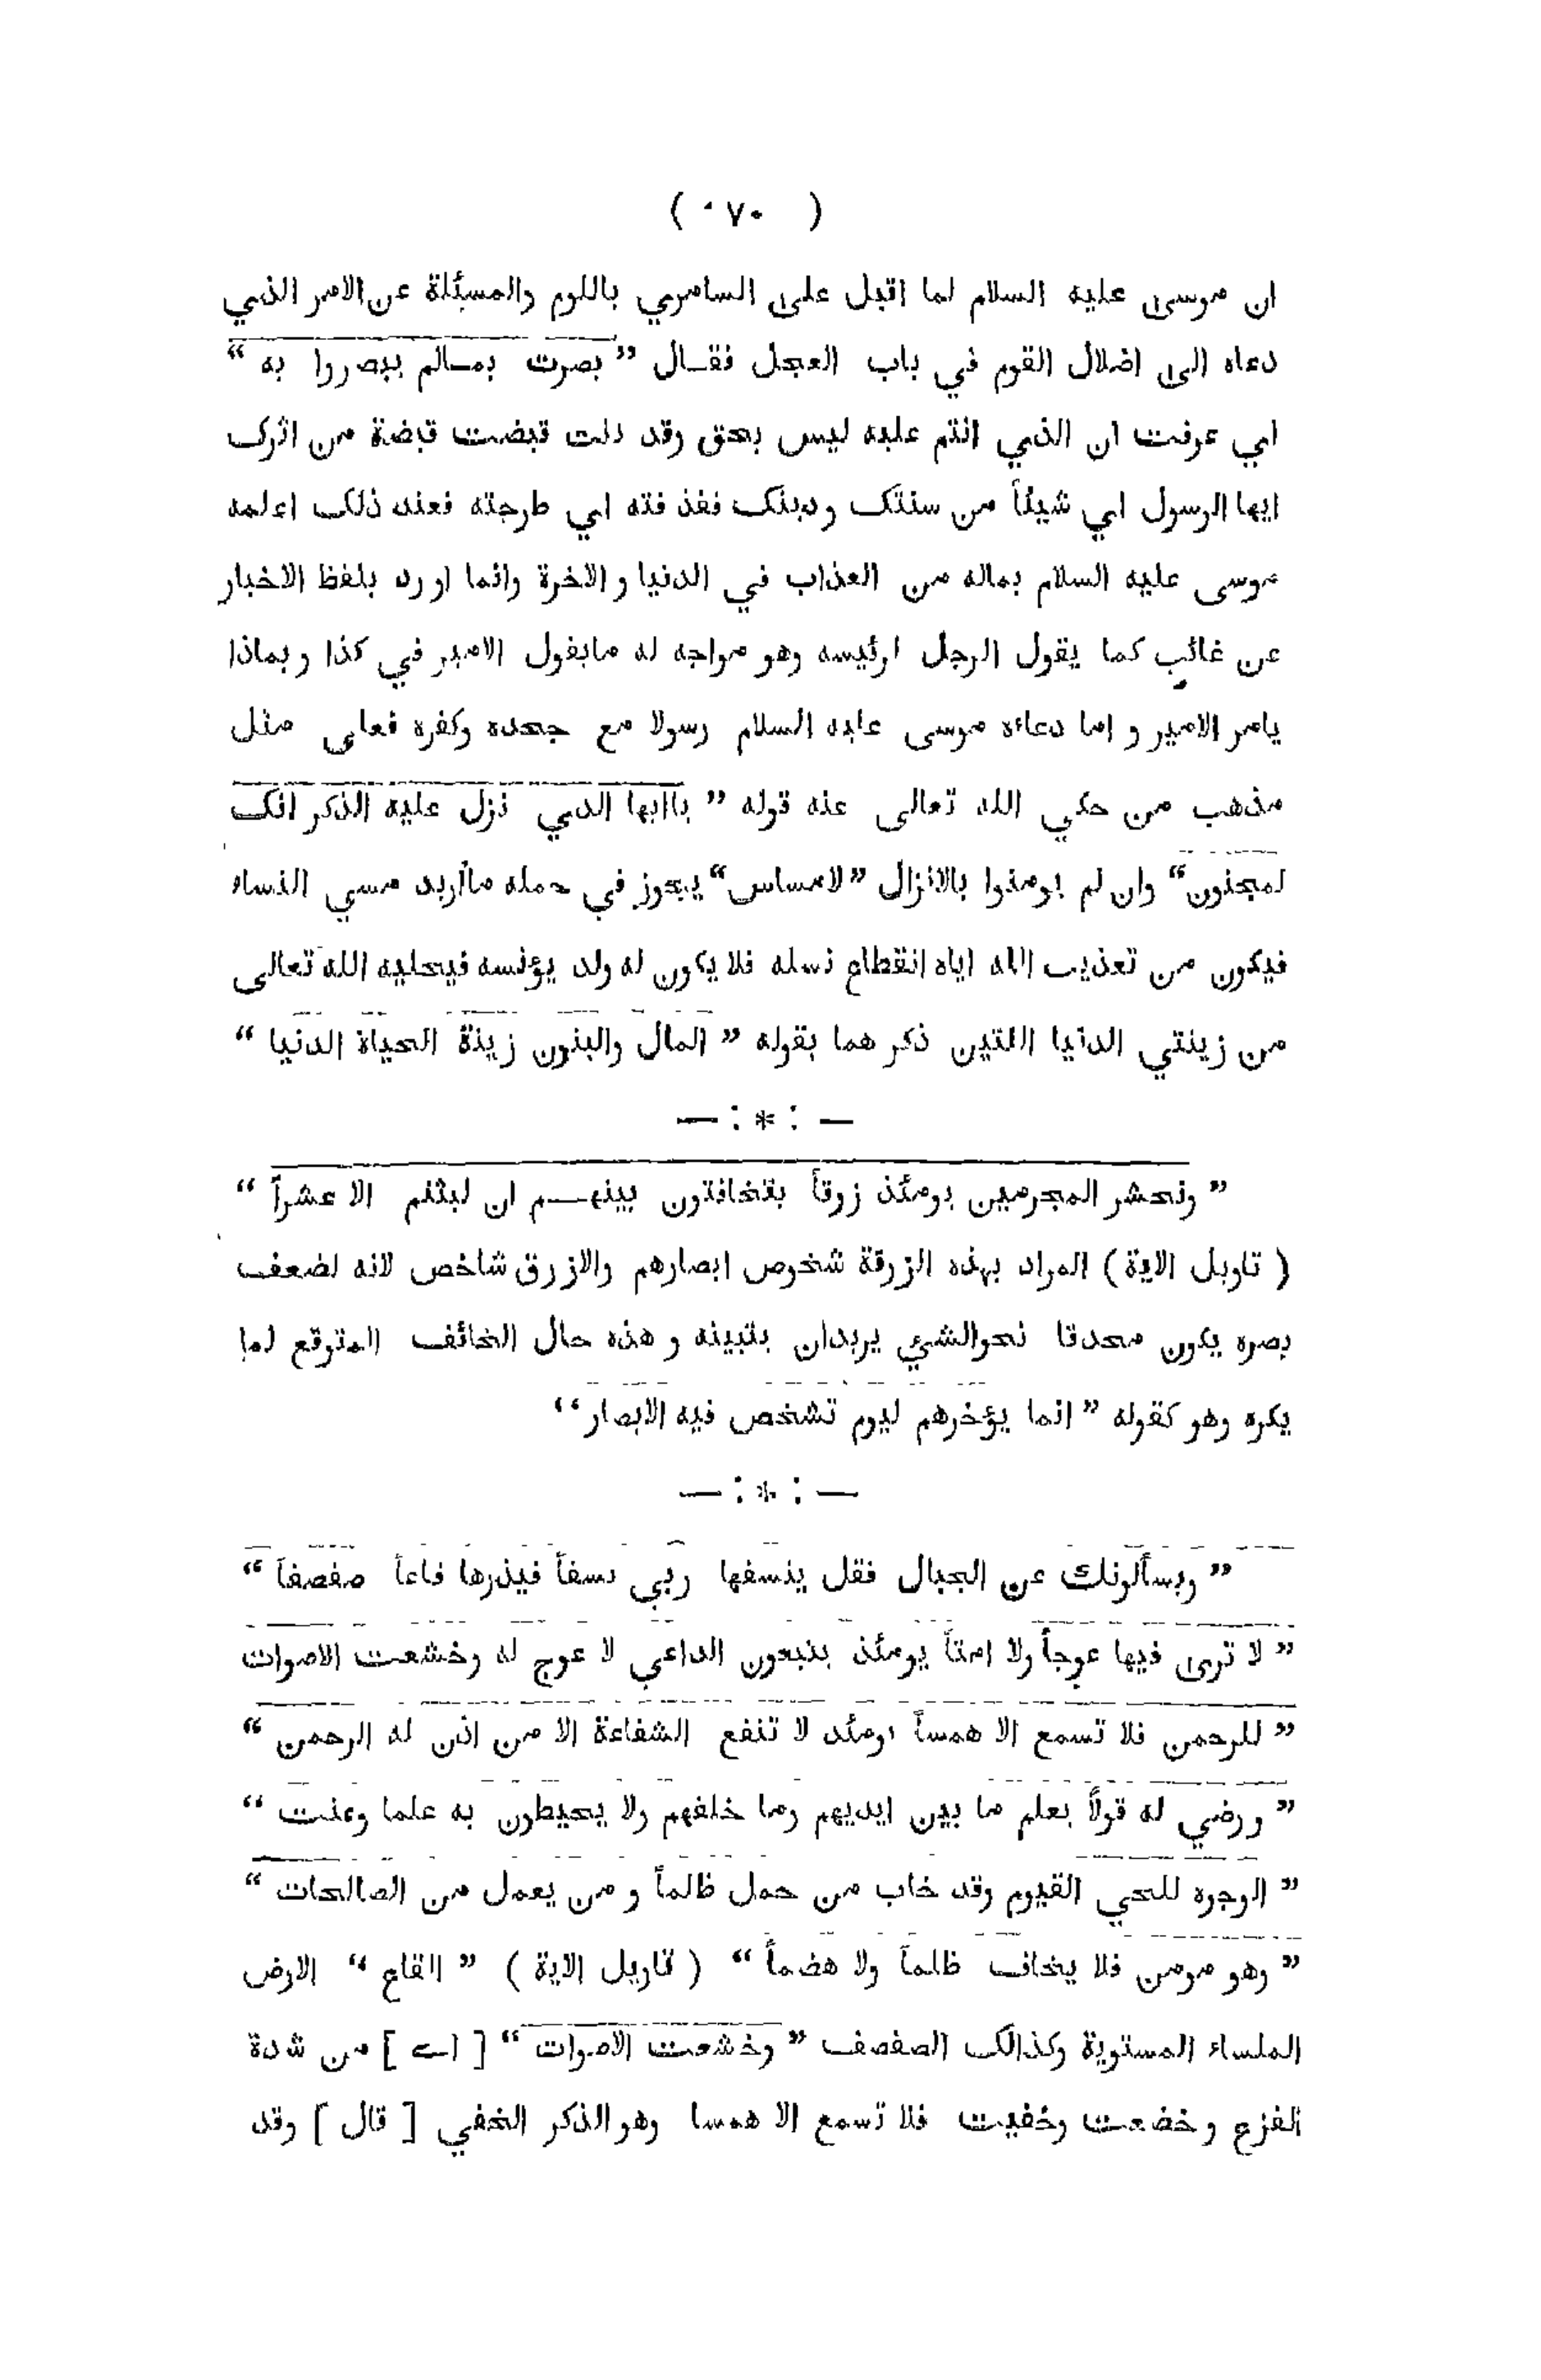 ( ٧٠ )
ان موسى عليه السلام لما اقبل على السامري باللوم والمسئلة عن الامر الذي
دعاه الى اضلال القوم في باب العجل فقـال ” بصرت بمـالم يبصروا به “
اي عرفت ان الذي انتم عليه ليس بحق وقد كنت قبضت قبضة من اثرك
ايها الرسول اي شيئاً من سنتك ودينك فقذ فته اي طرحته فعند ذلك اعلمه
موسى عليه السلام بماله من العذاب في الدنيا والاخرة وانما اورد بلفظ الاخبار
عن غائب كما يقول الرجل لرئيسه وهو مواجه له مايقول الامير في كذا وبماذا
يامر الامير و اما دعاءه موسى عليه السلام رسولا مع جحده وكفره فعلى مثل
مذهب من حكي الله تعالى عنه قوله ” ياايها الذي نزل عليه الذكر انك
لمجنون“ وان لم يومنوا بالانزال ”لامساس“ يجوز في حمله مااريد مسي النساء
فيكون من تعذيب الله اياه انقطاع نسله فلا يكون له ولد يؤنسه فيخليه الله تعالى
من زينتي الدنيا اللتين ذكر هما بقوله ” المال والبنون زينة الحياة الدنيا “
— : * : —
” ونحشر المجرمين يومئذ زرقاً يتخافتون بينهـــم ان لبثتم الا عشراً “
( تاويل الاية ) المراد بهذه الزرقة شخوص ابصارهم والازرق شاخص لانه لضعف
بصره يكون محدقا نحوالشئي يريدان يتبينه و هذه حال الخائف المتوقع لما
يكره وهو كقوله ” انما يؤخرهم ليوم تشخص فيه الابصار“
— : * : —
” ويسألونك عن الجبال فقل ينسفها ربي نسفاً فيذرها قاعاً صفصفاً “
” لا ترى فيها عوجاً ولا امتاً يومئذ يتبعون الداعي لا عوج له وخشعت الاصوات
” للرحمن فلا تسمع الا همساً يومئذ لا تنفع الشفاعة الا من اذن له الرحمن “
” ورضي له قولاً يعلم ما بين ايديهم وما خلفهم ولا يحيطون به علما وعنت “
” الوجوه للحي القيوم وقد خاب من حمل ظلماً و من يعمل من الصالحات “
” وهو مومن فلا يخاف ظلماً ولا هضماً “ ( تاويل الاية ) ” القاع “ الارض
الملساء المستوية وكذالك الصفصف ” وخشعت الاصوات “ [ اے ] من شدة
الفزع وخضعت وخفيت فلا تسمع الا همسا وهو الذكر الخفي [ قال ] وقد